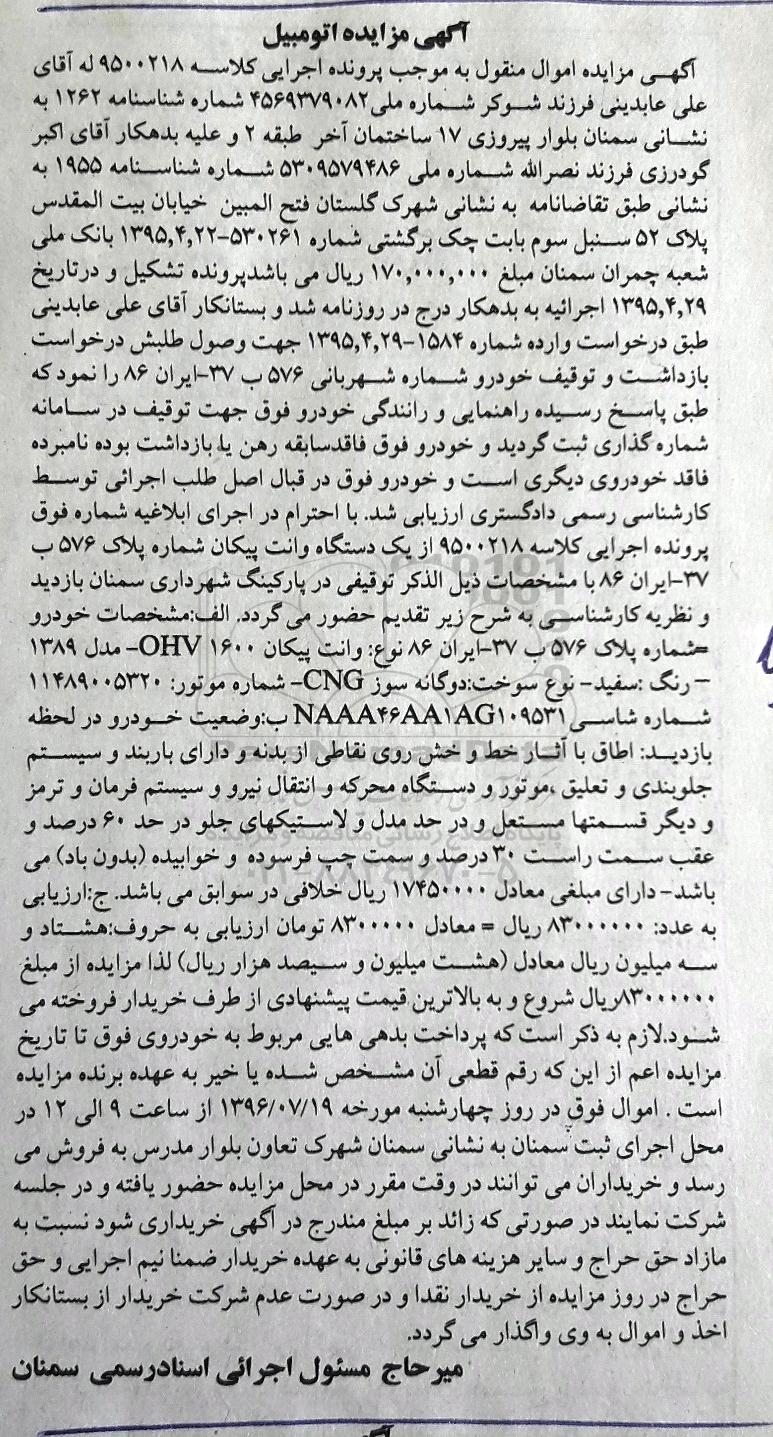 آگهی مزایده اتومبیل
آگهی مزایده اموال منقول به موجب پرونده اجرایی کلاسه ۹۵۰۰۲۱۸ له آقای
علی عابدینی فرزند شوکر شماره ملی۴۵۶۹۳۷۹۰۸۲ شماره شناسنامه ۱۲۶۲ به
نشانی سمنان بلوار پیروزی ۱۷ ساختمان آخر طبقه ۲ و علیه بدهکار آقای اکبر
گودرزی فرزند نصرالله شماره ملی ۵۳۰۹۵۷۹۴۸۶ شماره شناسنامه ۱۹۵۵ به
نشانی طبق تقاضانامه به نشانی شهرک گلستان فتح المبین خیابان بیت المقدس
پلاک ۵۲ سنبل سوم بابت چک برگشتی شماره ۵۳۰۲۶۱-۱۳۹۵,۴,۲۲ بانک ملی
شعبه چمران سمنان مبلغ ۱۷۰,۰۰۰,۰۰۰ ریال می باشدپرونده تشکیل و درتاریخ
۱۳۹۵,۴,۲۹ اجرائیه به بدهکار درج در روزنامه شد و بستانکار آقای علی عابدینی
طبق درخواست وارده شماره ۱۵۸۴-۱۳۹۵,۴,۲۹ جهت وصول طلبش درخواست
بازداشت و توقیف خودرو شماره شهربانی ۵۷۶ ب ۳۷-ایران ۸۶ را نمود که
طبق پاسخ رسیده راهنمایی و رانندگی خودرو فوق جهت توقیف در سامانه
شماره گذاری ثبت گردید و خودرو فوق فاقدسابقه رهن یا بازداشت بوده نامبرده
فاقد خودروی دیگری است و خودرو فوق در قبال اصل طلب اجرائی توسط
کارشناسی رسمی دادگستری ارزیابی شد. با احترام در اجرای ابلاغیه شماره فوق
پرونده اجرایی کلاسه ۹۵۰۰۲۱۸ از یک دستگاه وانت پیکان شماره پلاک ۵۷۶ ب
۳۷-ایران ۸۶ با مشخصات ذیل الذکر توقیفی در پارکینگ شهرداری سمنان بازدید
و نظریه کارشناسی به شرح زیر تقدیم حضور می گردد. الف:مشخصات خودرو
=شماره پلاک ۵۷۶ ب ۳۷-ایران ۸۶ نوع: وانت پیکان ۱۶۰۰ OHV- مدل ۱۳۸۹
– رنگ :سفید- نوع سوخت:دوگانه سوز CNG- شماره موتور: ۱۱۴۸۹۰۰۵۳۲۰
شماره شاسی NAAA۴۶AA۱AG۱۰۹۵۳۱ ب:وضعیت خودرو در لحظه
بازدید: اطاق با آثار خط و خش روی نقاطی از بدنه و دارای باربند و سیستم
جلوبندی و تعلیق ،موتور و دستگاه محرکه و انتقال نیرو و سیستم فرمان و ترمز
و دیگر قسمتها مستعل و در حد مدل و لاستیکهای جلو در حد ۶۰ درصد و
عقب سمت راست ۳۰ درصد و سمت چپ فرسوده و خوابیده (بدون باد) می
باشد- دارای مبلغی معادل ۱۷۴۵۰۰۰۰ ریال خلافی در سوابق می باشد. ج:ارزیابی
به عدد: ۸۳۰۰۰۰۰۰ ریال = معادل ۸۳۰۰۰۰۰ تومان ارزیابی به حروف:هشتاد و
سه میلیون ریال معادل (هشت میلیون و سیصد هزار ریال) لذا مزایده از مبلغ
۸۳۰۰۰۰۰۰ریال شروع و به بالاترین قیمت پیشنهادی از طرف خریدار فروخته می
شود.لازم به ذکر است که پرداخت بدهی هایی مربوط به خودروی فوق تا تاریخ
مزایده اعم از این که رقم قطعی آن مشخص شده یا خیر به عهده برنده مزایده
است . اموال فوق در روز چهارشنبه مورخه ۱۳۹۶/۰۷/۱۹ از ساعت ۹ الی ۱۲ در
محل اجرای ثبت سمنان به نشانی سمنان شهرک تعاون بلوار مدرس به فروش می
رسد و خریداران می توانند در وقت مقرر در محل مزایده حضور یافته و در جلسه
شرکت نمایند در صورتی که زائد بر مبلغ مندرج در آگهی خریداری شود نسبت به
مازاد حق حراج و سایر هزینه های قانونی به عهده خریدار ضمنا نیم اجرایی و حق
حراج در روز مزایده از خریدار نقدا و در صورت عدم شرکت خریدار از بستانکار
اخذ و اموال به وی واگذار می گردد.
میرحاج مسئول اجرائی اسنادرسمی سمنان